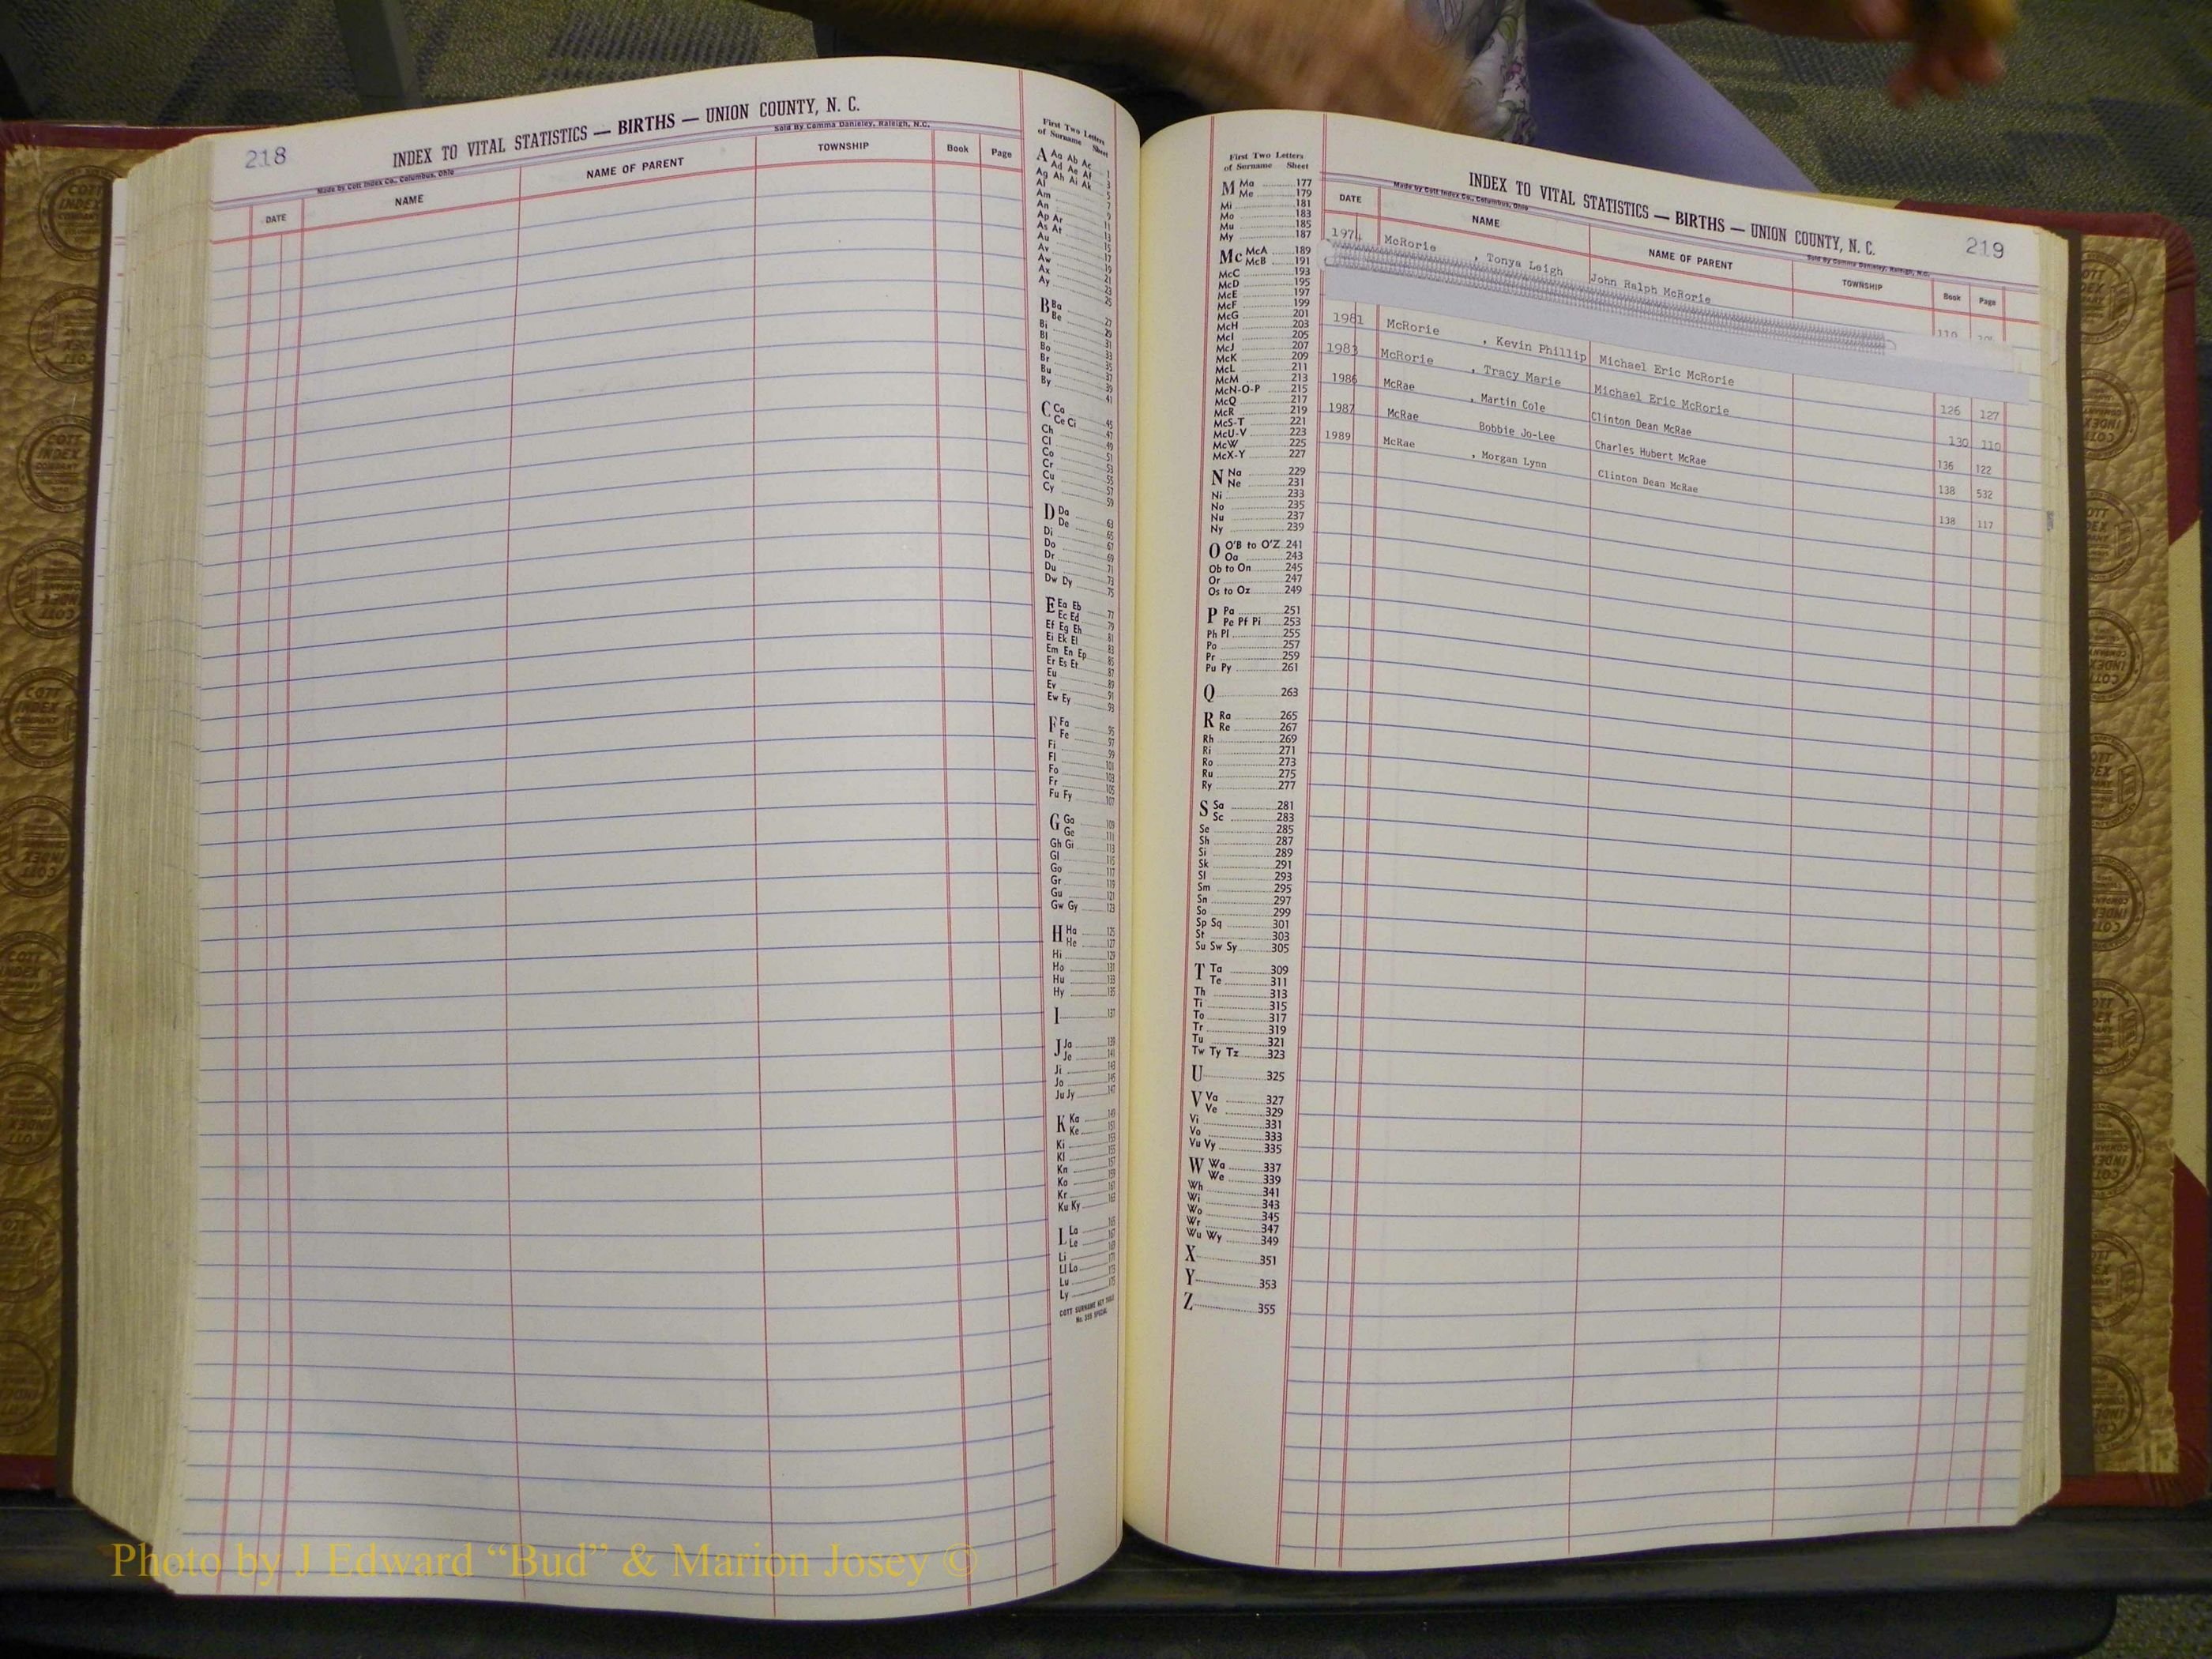 218
INDEX TO VITAL STATISTICS — BIRTHS — UNION COUNTY, N. C.
Made by Cott Index Co., Columbus, Ohio
Sold By Comma Danieley, Raleigh, N.C.
DATE NAME NAME OF PARENT TOWNSHIP Book Page
First Two Letters
of Surname Sheet
A Aa Ab Ac 1
Ad Ae Af 3
Ag Ah Ai Ak 5
Al 7
Am 9
An 11
Ap Ar 13
As At 15
Au 17
Av 19
Aw 21
Ax 23
Ay 25
B Ba 27
Be 29
Bi 31
Bl 33
Bo 35
Br 37
Bu 39
By 41
C Ca 45
Ce Ci 47
Ch 49
Cl 51
Co 53
Cr 55
Cu 57
Cy 59
D Da 63
De 65
Di 67
Do 69
Dr 71
Du 73
Dw Dy 75
E Ea Eb 77
Ec Ed 79
Ef Eg Eh 81
Ei Ek El 83
Em En Ep 85
Er Es Et 87
Eu 89
Ev 91
Ew Ey 93
F Fa 95
Fe 97
Fi 99
Fl 101
Fo 103
Fr 105
Fu Fy 107
G Ga 109
Ge 111
Gh Gi 113
Gl 115
Go 117
Gr 119
Gu 121
Gw Gy 123
H Ha 125
He 127
Hi 129
Ho 131
Hu 133
Hy 135
I 137
J Ja 139
Je 141
Ji 143
Jo 145
Ju Jy 147
K Ka 149
Ke 151
Ki 153
Kl 155
Kn 157
Ko 159
Kr 161
Ku Ky 163
L La 165
Le 167
Li 169
Ll Lo 171
Lu 173
Ly 175
COTT SURNAME KEY TABLE
First Two Letters
of Surname Sheet
M Ma 177
Me 179
Mi 181
Mo 183
Mu 185
My 187
Mc McA 189
McB 191
McC 193
McD 195
McE 197
McF 199
McG 201
McH 203
McI 205
McJ 207
McK 209
McL 211
McM 213
McN-O-P 215
McQ 217
McR 219
McS-T 221
McU-V 223
McW 225
McX-Y 227
N Na 229
Ne 231
Ni 233
No 235
Nu 237
Ny 239
O O'B to O'Z 241
Oa 243
Ob to On 245
Or 247
Os to Oz 249
P Pa 251
Pe Pf Pi 253
Ph Pl 255
Po 257
Pr 259
Pu Py 261
Q 263
R Ra 265
Re 267
Rh 269
Ri 271
Ro 273
Ru 275
Ry 277
S Sa 281
Sc 283
Se 285
Sh 287
Si 289
Sk 291
Sl 293
Sm 295
Sn 297
So 299
Sp Sq 301
St 303
Su Sw Sy 305
T Ta 309
Te 311
Th 313
Ti 315
To 317
Tr 319
Tu 321
Tw Ty Tz 323
U 325
V Va 327
Ve 329
Vi 331
Vo 333
Vu Vy 335
W Wa 337
We 339
Wh 341
Wi 343
Wo 345
Wr 347
Wu Wy 349
X 351
Y 353
Z 355
INDEX TO VITAL STATISTICS — BIRTHS — UNION COUNTY, N. C.
219
Made by Cott Index Co., Columbus, Ohio
Sold By Comma Danieley, Raleigh, N.C.
DATE NAME NAME OF PARENT TOWNSHIP Book Page
1974 McRorie , Tonya Leigh John Ralph McRorie
1981 McRorie , Kevin Phillip Michael Eric McRorie 126 127
1983 McRorie , Tracy Marie Michael Eric McRorie 130 110
1986 McRae , Martin Cole Clinton Dean McRae 136 122
1987 McRae Bobbie Jo-Lee Charles Hubert McRae 138 532
1989 McRae , Morgan Lynn Clinton Dean McRae 138 117
Photo by J Edward “Bud” & Marion Josey ©